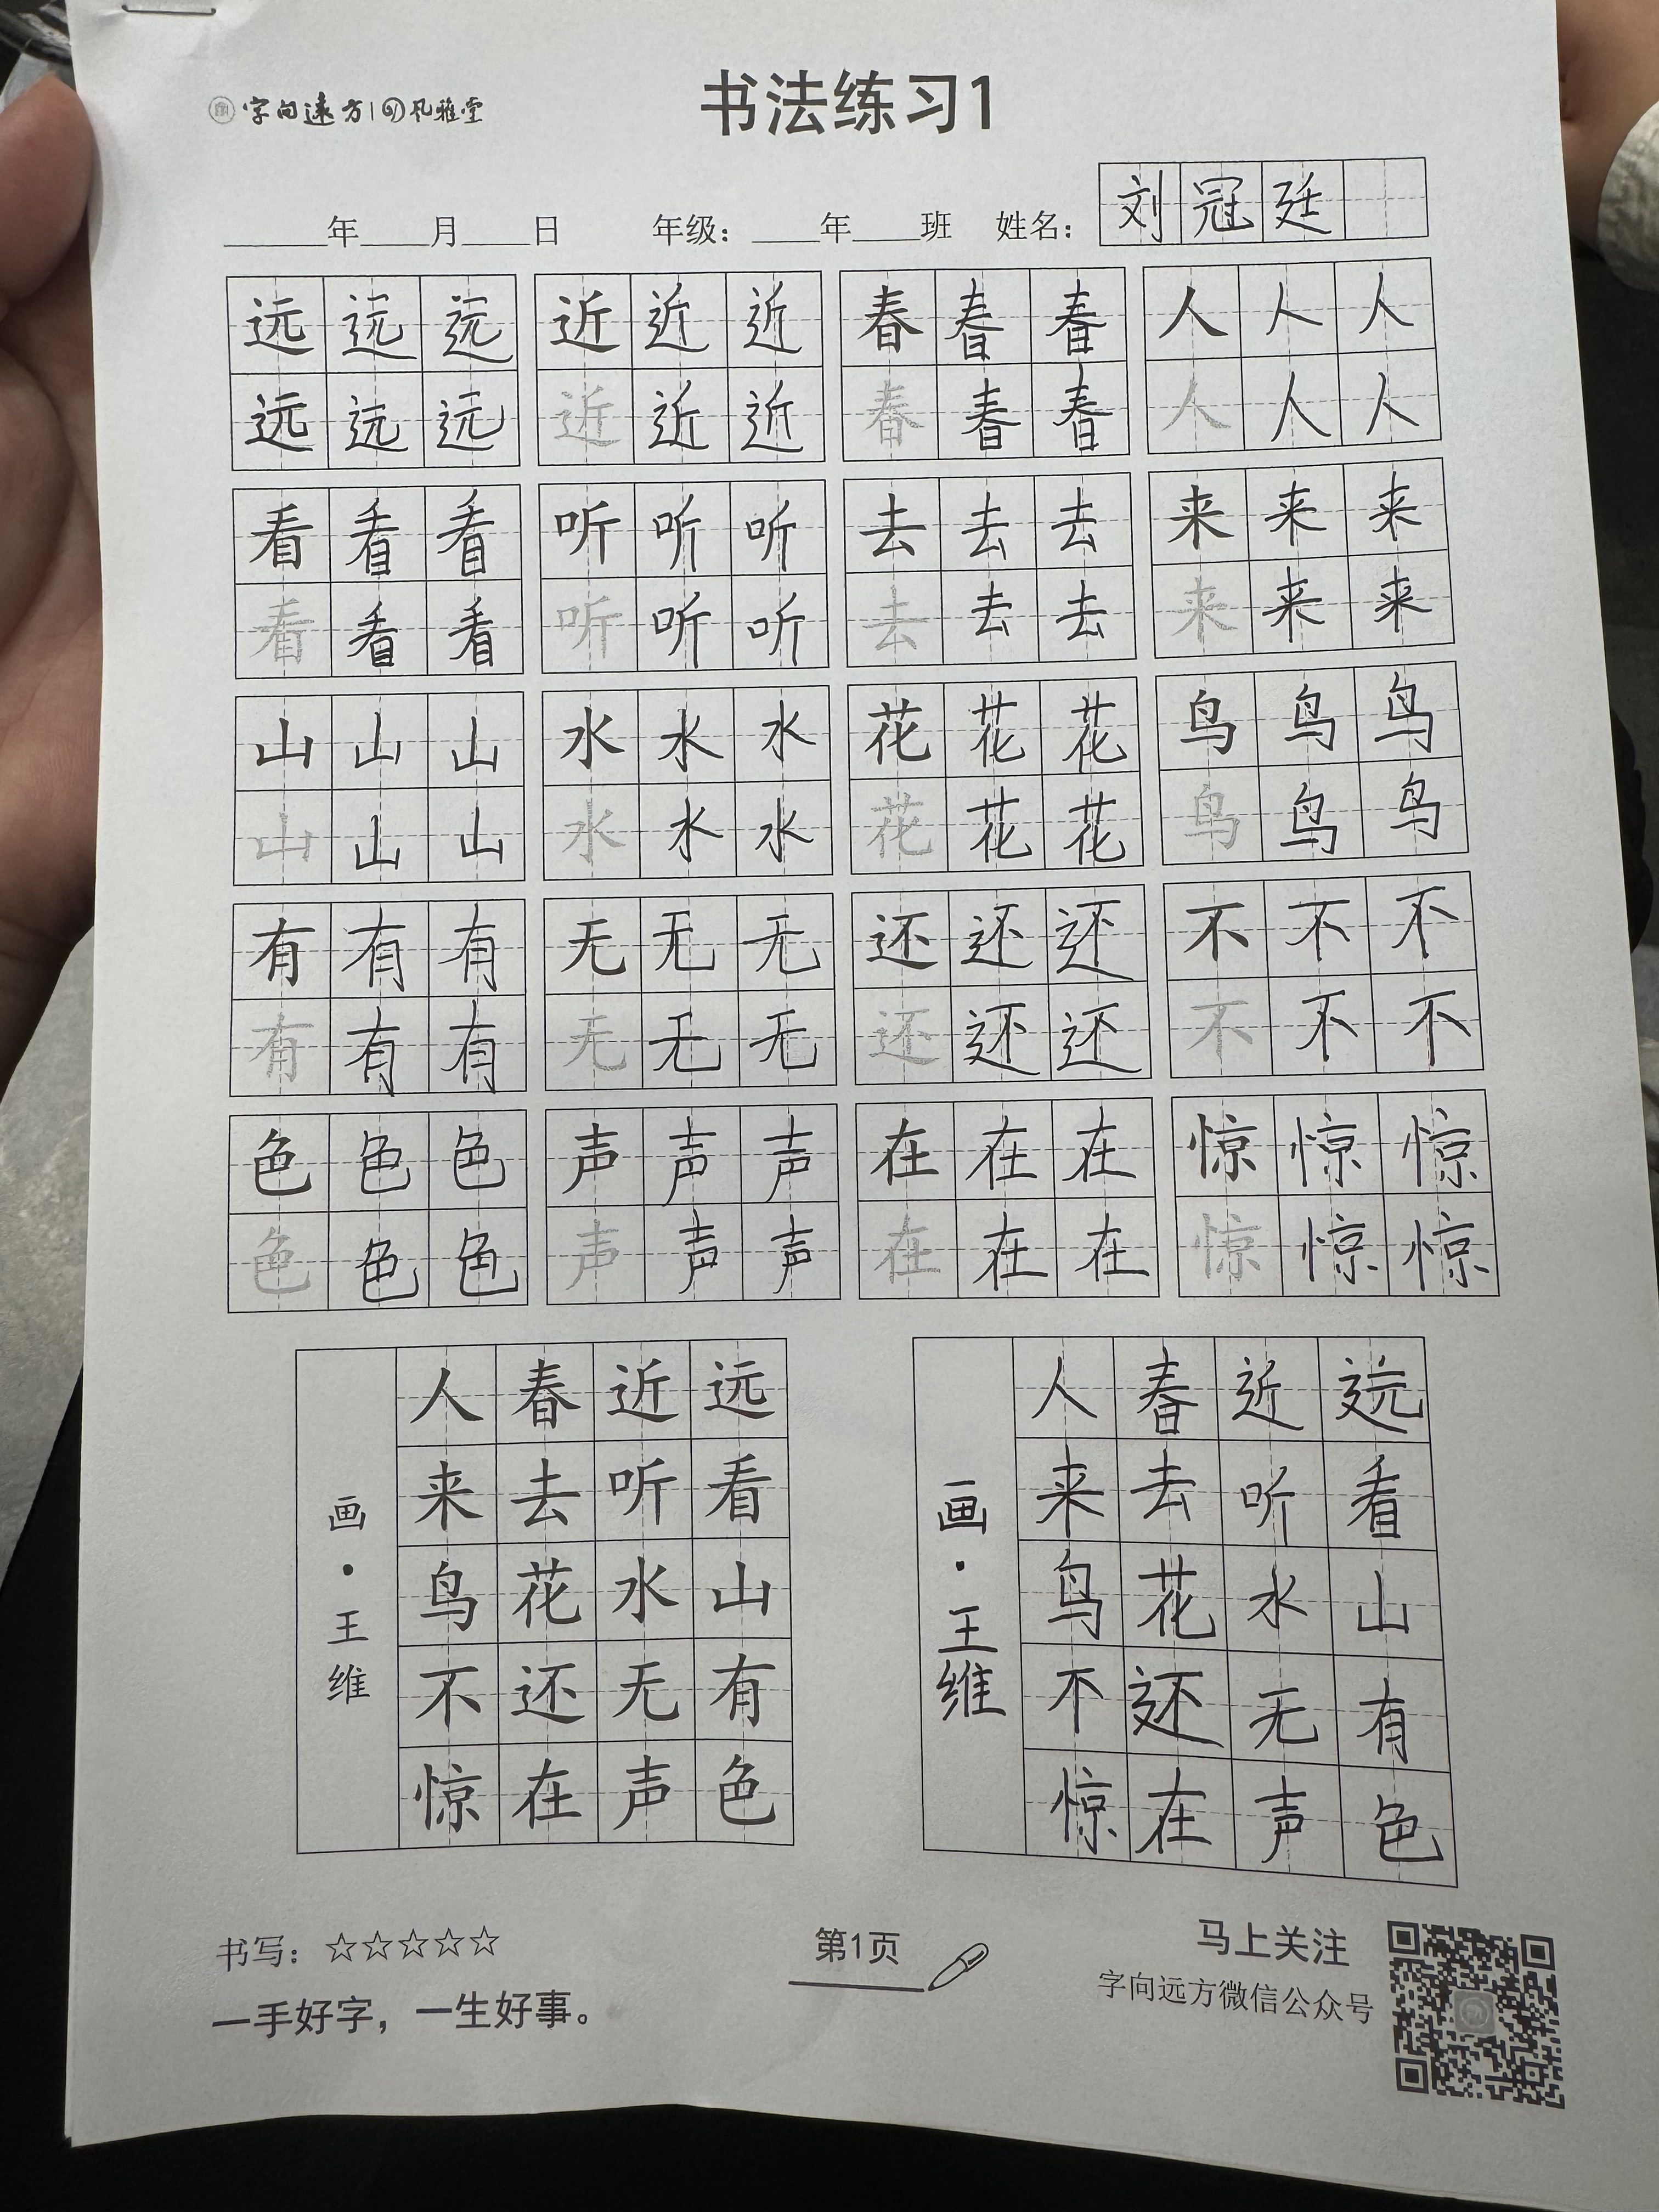 书法练习1
字向远方 | 孔雅堂
年 月 日 年级： 年 班 姓名： 刘冠廷
远远远 近近近 春春春 人人人
远远远 近近近 春春春 人人人
看看看 听听听 去去去 来来来
看看看 听听听 去去去 来来来
山山山 水水水 花花花 鸟鸟鸟
山山山 水水水 花花花 鸟鸟鸟
有有有 无无无 还还还 不不不
有有有 无无无 还还还 不不不
色色色 声声声 在在在 惊惊惊
色色色 声声声 在在在 惊惊惊
远看山有色
近听水无声
春去花还在
人来鸟不惊
画·王维
远看山有色
近听水无声
春去花还在
人来鸟不惊
画·王维
书写：☆☆☆☆☆
一手好字，一生好事。
第1页
马上关注
字向远方微信公众号